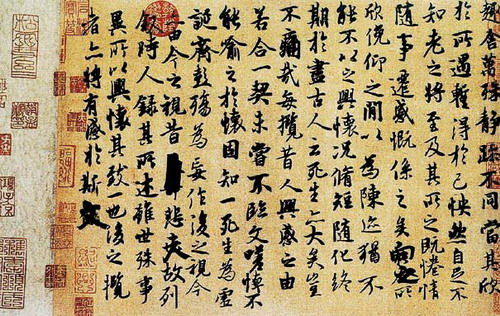 趣舍萬殊靜躁不同當其欣
於所遇蹔得於己怏然自足不
知老之將至及其所之既惓情
隨事遷感慨係之矣向之所
欣俛仰之閒以為陳迹猶不
能不以之興懷況脩短隨化終
期於盡古人云死生亦大矣豈
不痛哉每攬昔人興感之由
若合一契未嘗不臨文嗟悼不
能喻之於懷固知一死生為虛
誕齊彭殤為妄作後之視今
亦由今之視昔悲夫故列
敘時人錄其所述雖世殊事
異所以興懷其致一也後之攬
者亦將有感於斯文